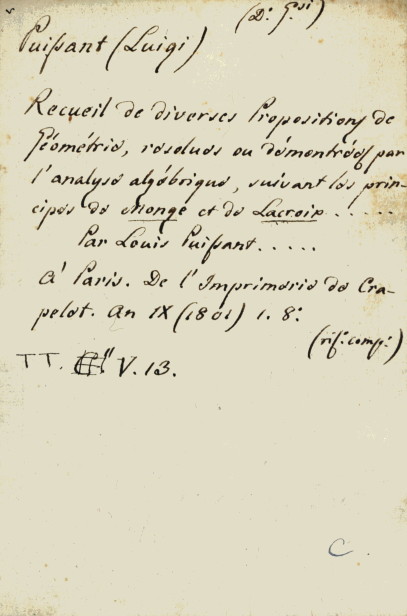 (D.º G.si)
Puissant (Luigi)
Recueil de diverses Propositions de
Géométrie, resolues ou démontrées par
l'analyse algébrique, suivant les prin-
cipes de Monge et de Lacroix.....
Par Louis Puissant.....
À Paris. De l'Imprimerie de Cra-
pelet. An IX (1801) 1. 8.º
(rif.º comp.º)
TT. V. 13.
C.